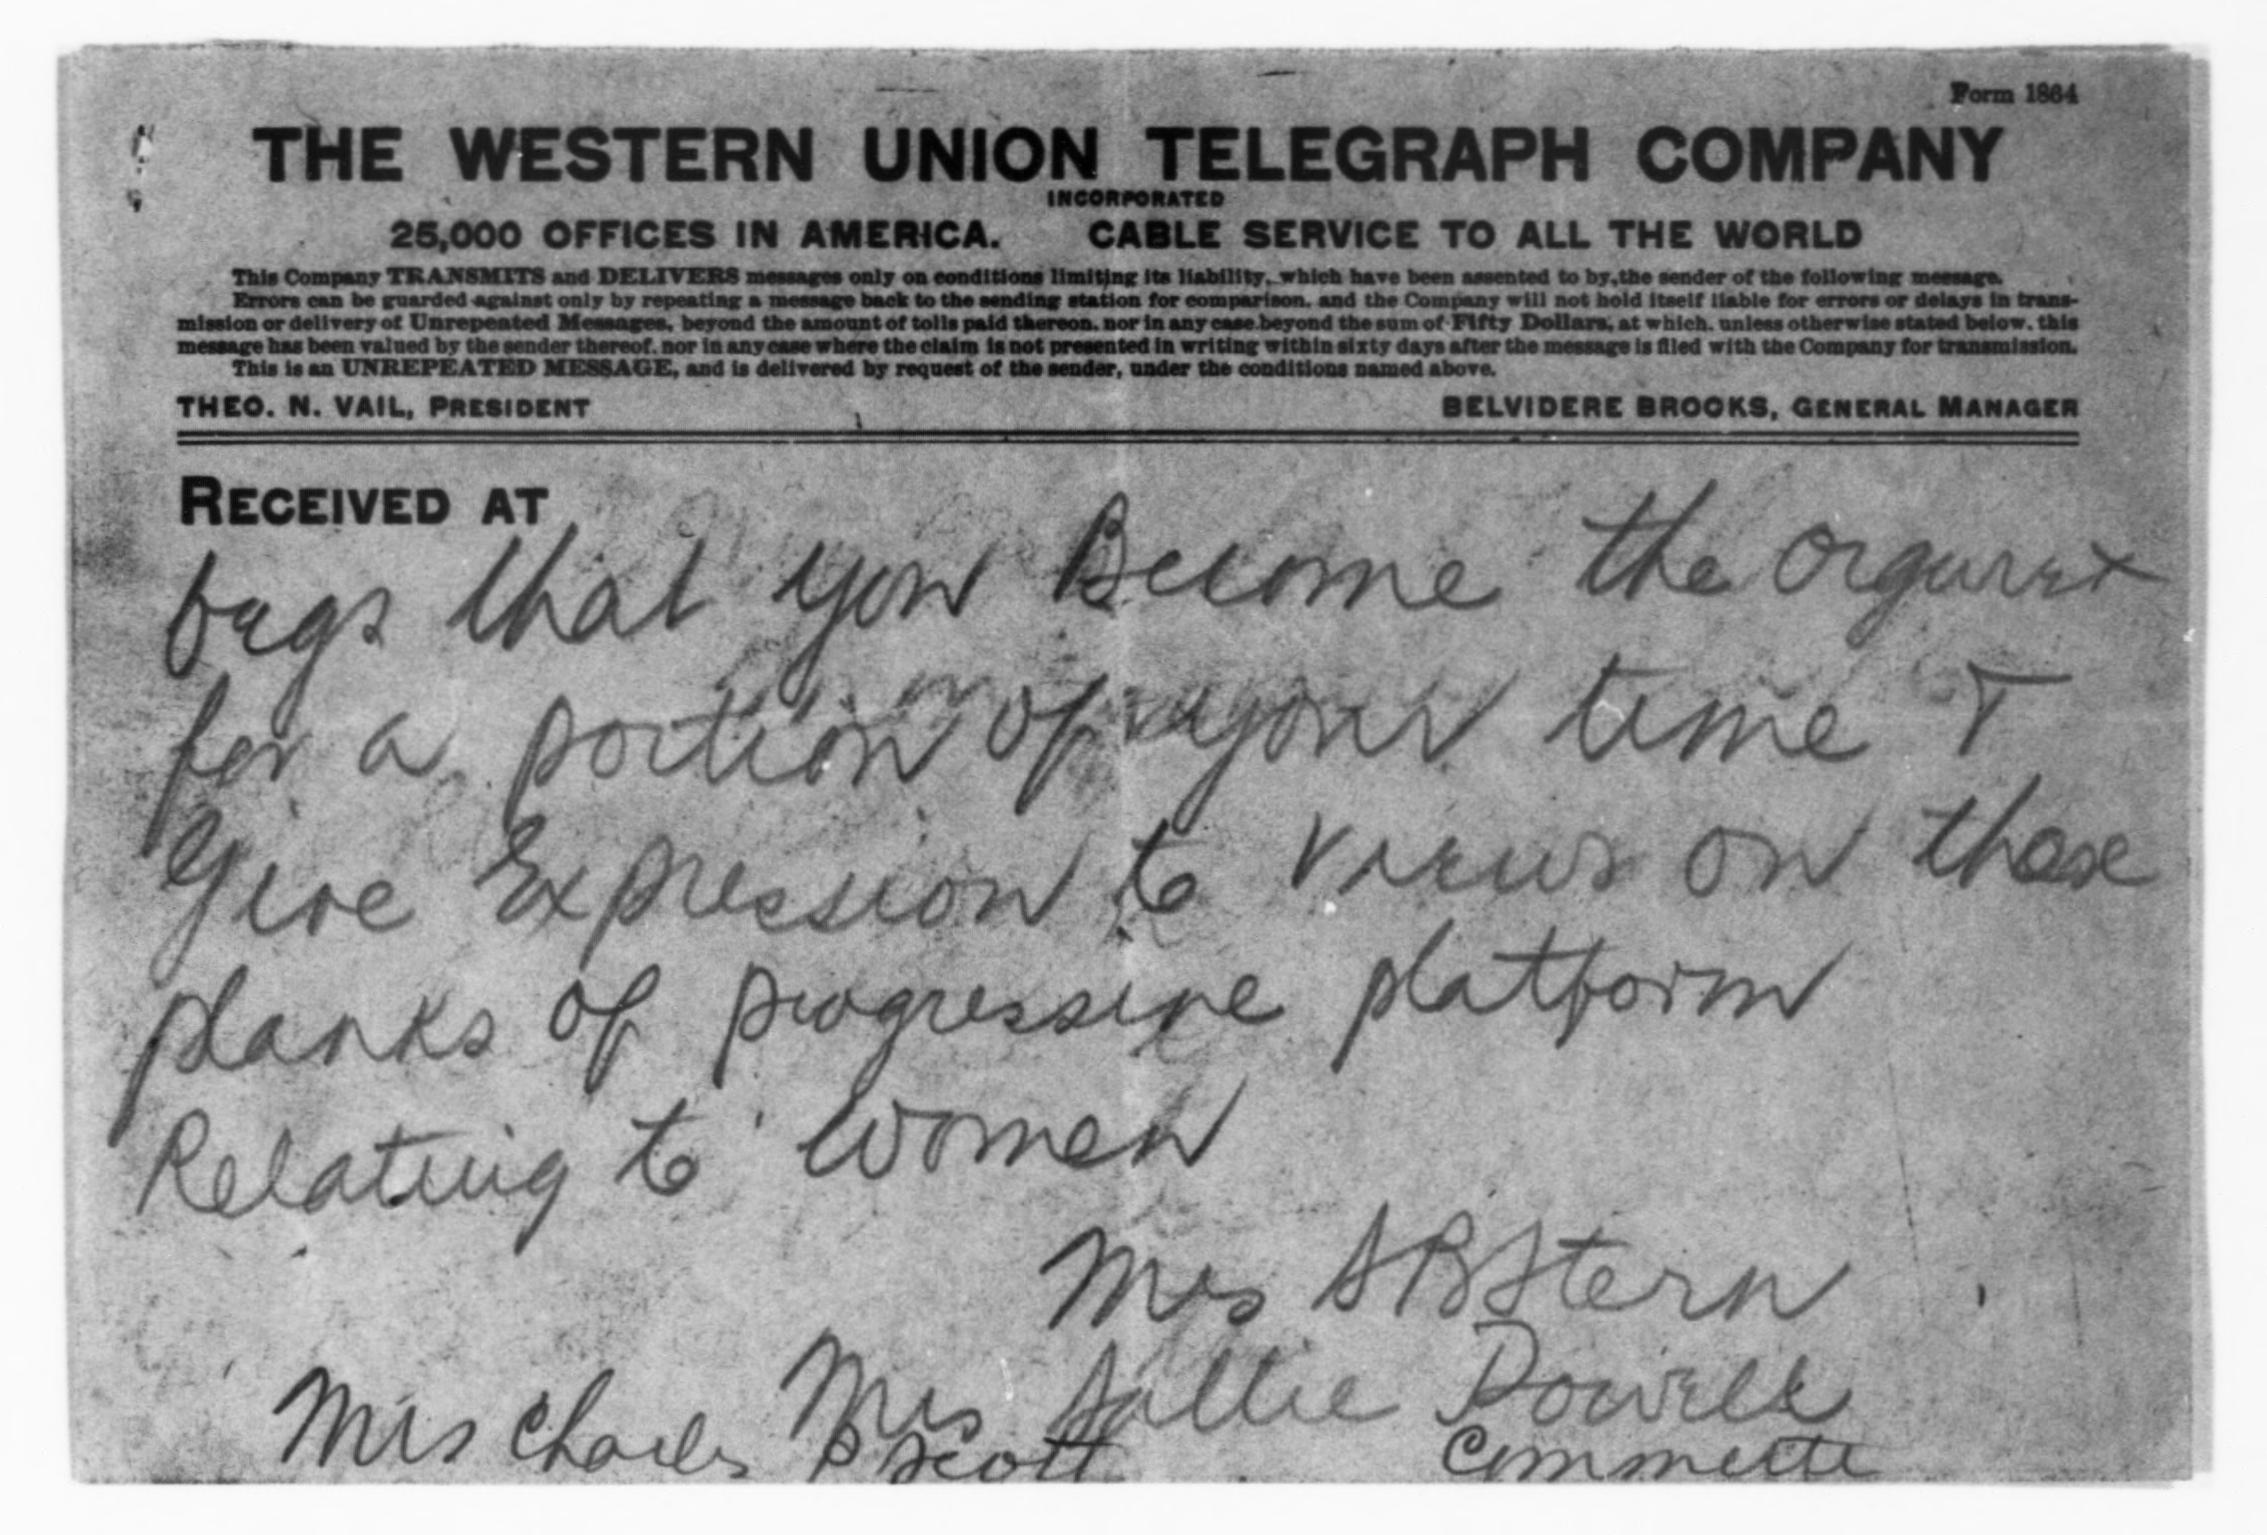 Form 1864
THE WESTERN UNION TELEGRAPH COMPANY
INCORPORATED
25,000 OFFICES IN AMERICA. CABLE SERVICE TO ALL THE WORLD
This Company TRANSMITS and DELIVERS messages only on conditions limiting its liability, which have been assented to by the sender of the following message.
Errors can be guarded against only by repeating a message back to the sending station for comparison, and the Company will not hold itself liable for errors or delays in trans-
mission or delivery of Unrepeated Messages, beyond the amount of tolls paid thereon, nor in any case beyond the sum of Fifty Dollars, at which, unless otherwise stated below, this
message has been valued by the sender thereof, nor in any case where the claim is not presented in writing within sixty days after the message is filed with the Company for transmission.
This is an UNREPEATED MESSAGE, and is delivered by request of the sender, under the conditions named above.
THEO. N. VAIL, PRESIDENT BELVIDERE BROOKS, GENERAL MANAGER
RECEIVED AT
that you Become the
for a portion of your time
Give Expression to views on those
planks of progressive platform
Relating to Women
Mrs S B Stern
Mrs Sallie Dowell
Mrs Charles P Scott Committe